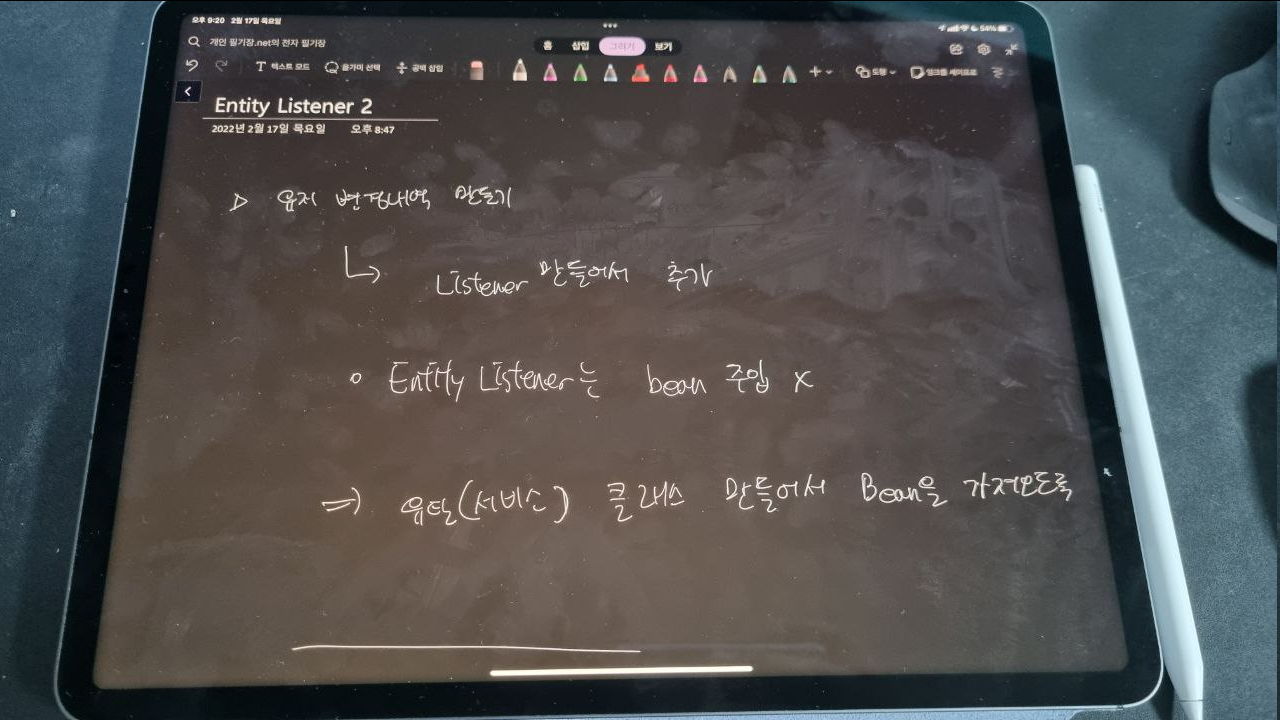 오후 9:20 2월 17일 목요일
54%
개인 필기장.net의 전자 필기장
홈 삽입 그리기 보기
텍스트 모드 올가미 선택 공백 삽입 도형
Entity Listener 2
2022년 2월 17일 목요일 오후 8:47
▷ 유저 변경내역 만들기
↳ Listener 만들어서 추가
○ Entity Listener는 bean 주입 x
⇒ 유틸(서비스) 클래스 만들어서 Bean을 가져오도록